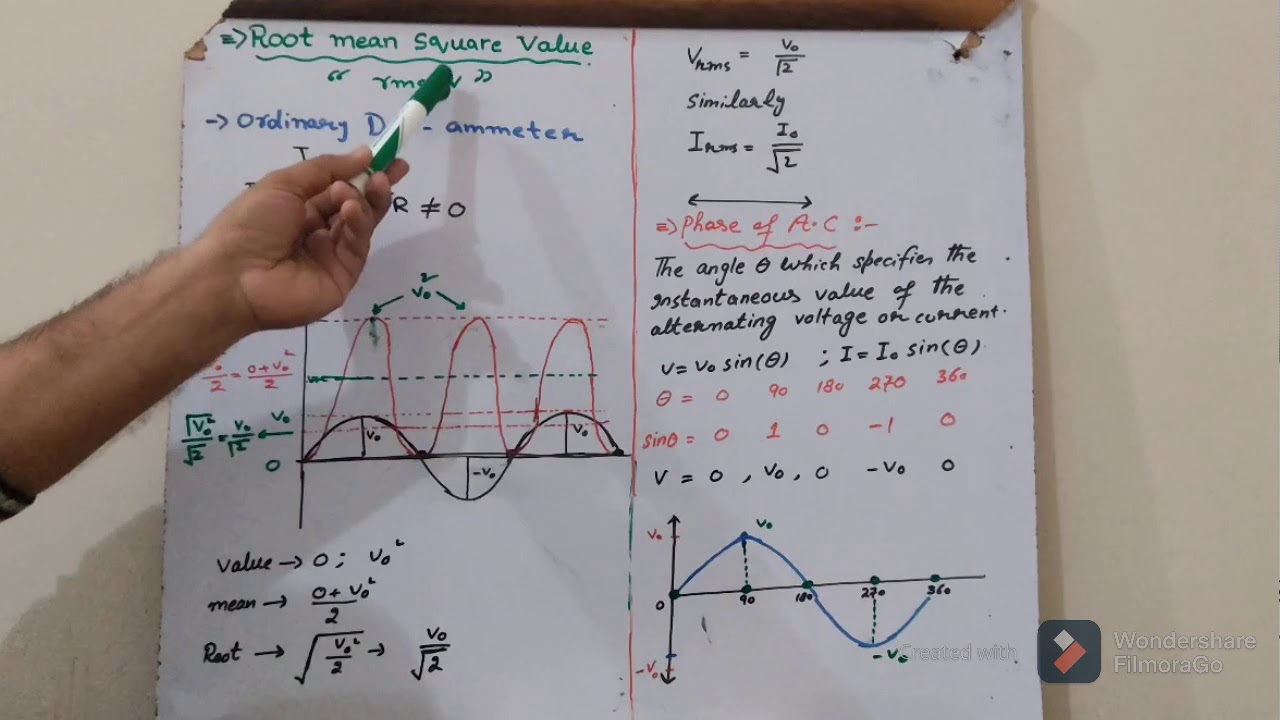 ⇒ Root mean square value
“ rms v ”
→ Ordinary D - ammeter
R ≠ 0
V₀²
= 0+V₀²/2
√V₀²/√2 = V₀/√2 ← V₀
0
V₀
-V₀
V₀
value → 0 ; V₀²
mean → 0+V₀²/2
Root → √V₀²/2 → V₀/√2
Vrms = V₀/√2
similarly
Irms = I₀/√2
⇒ Phase of A.C :-
The angle θ which specifies the
instantaneous value of the
alternating voltage or current.
V = V₀ sin(θ) ; I = I₀ sin(θ)
θ = 0 90 180 270 360
sinθ = 0 1 0 -1 0
V = 0 , V₀ , 0 -V₀ 0
V₀
V₀
0 90 180 270 360
-V₀
-V₀
Created with
Wondershare
FilmoraGo